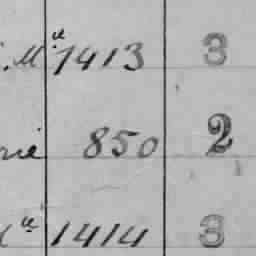 Mª 1413 3
850 2
ª 1414 3